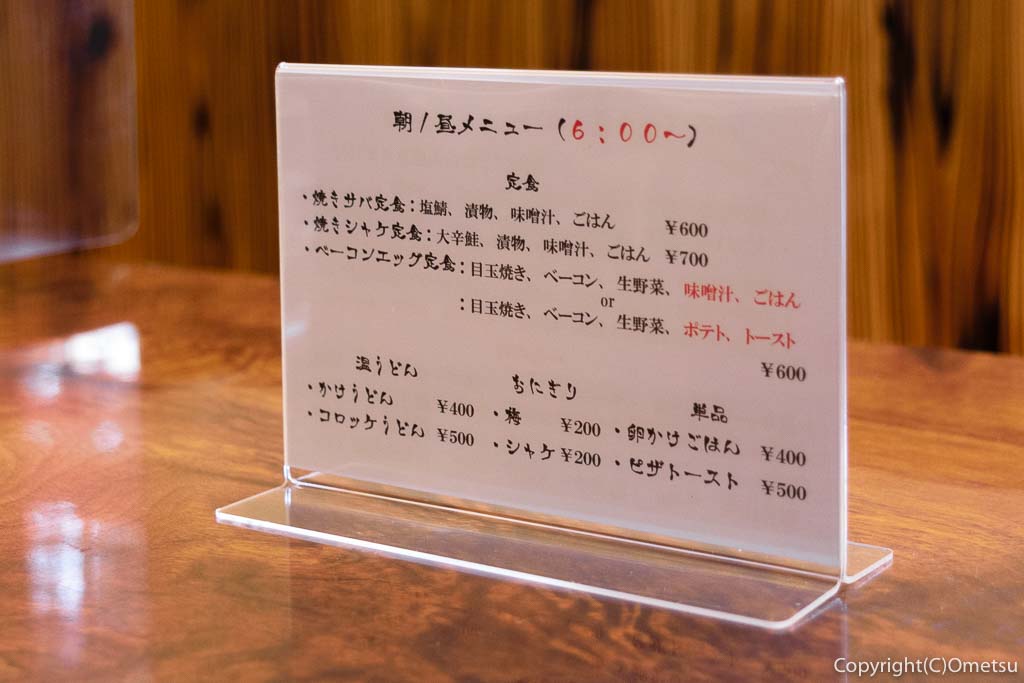 朝/昼メニュー(6:00～)
定食
・焼きサバ定食:塩鯖、漬物、味噌汁、ごはん ￥600
・焼きシャケ定食:大辛鮭、漬物、味噌汁、ごはん ￥700
・ベーコンエッグ定食:目玉焼き、ベーコン、生野菜、味噌汁、ごはん
or
:目玉焼き、ベーコン、生野菜、ポテト、トースト
￥600
温うどん
・かけうどん ￥400
・コロッケうどん ￥500
おにぎり
・梅 ￥200
・シャケ ￥200
単品
・卵かけごはん ￥400
・ピザトースト ￥500
Copyright(C)Ometsu